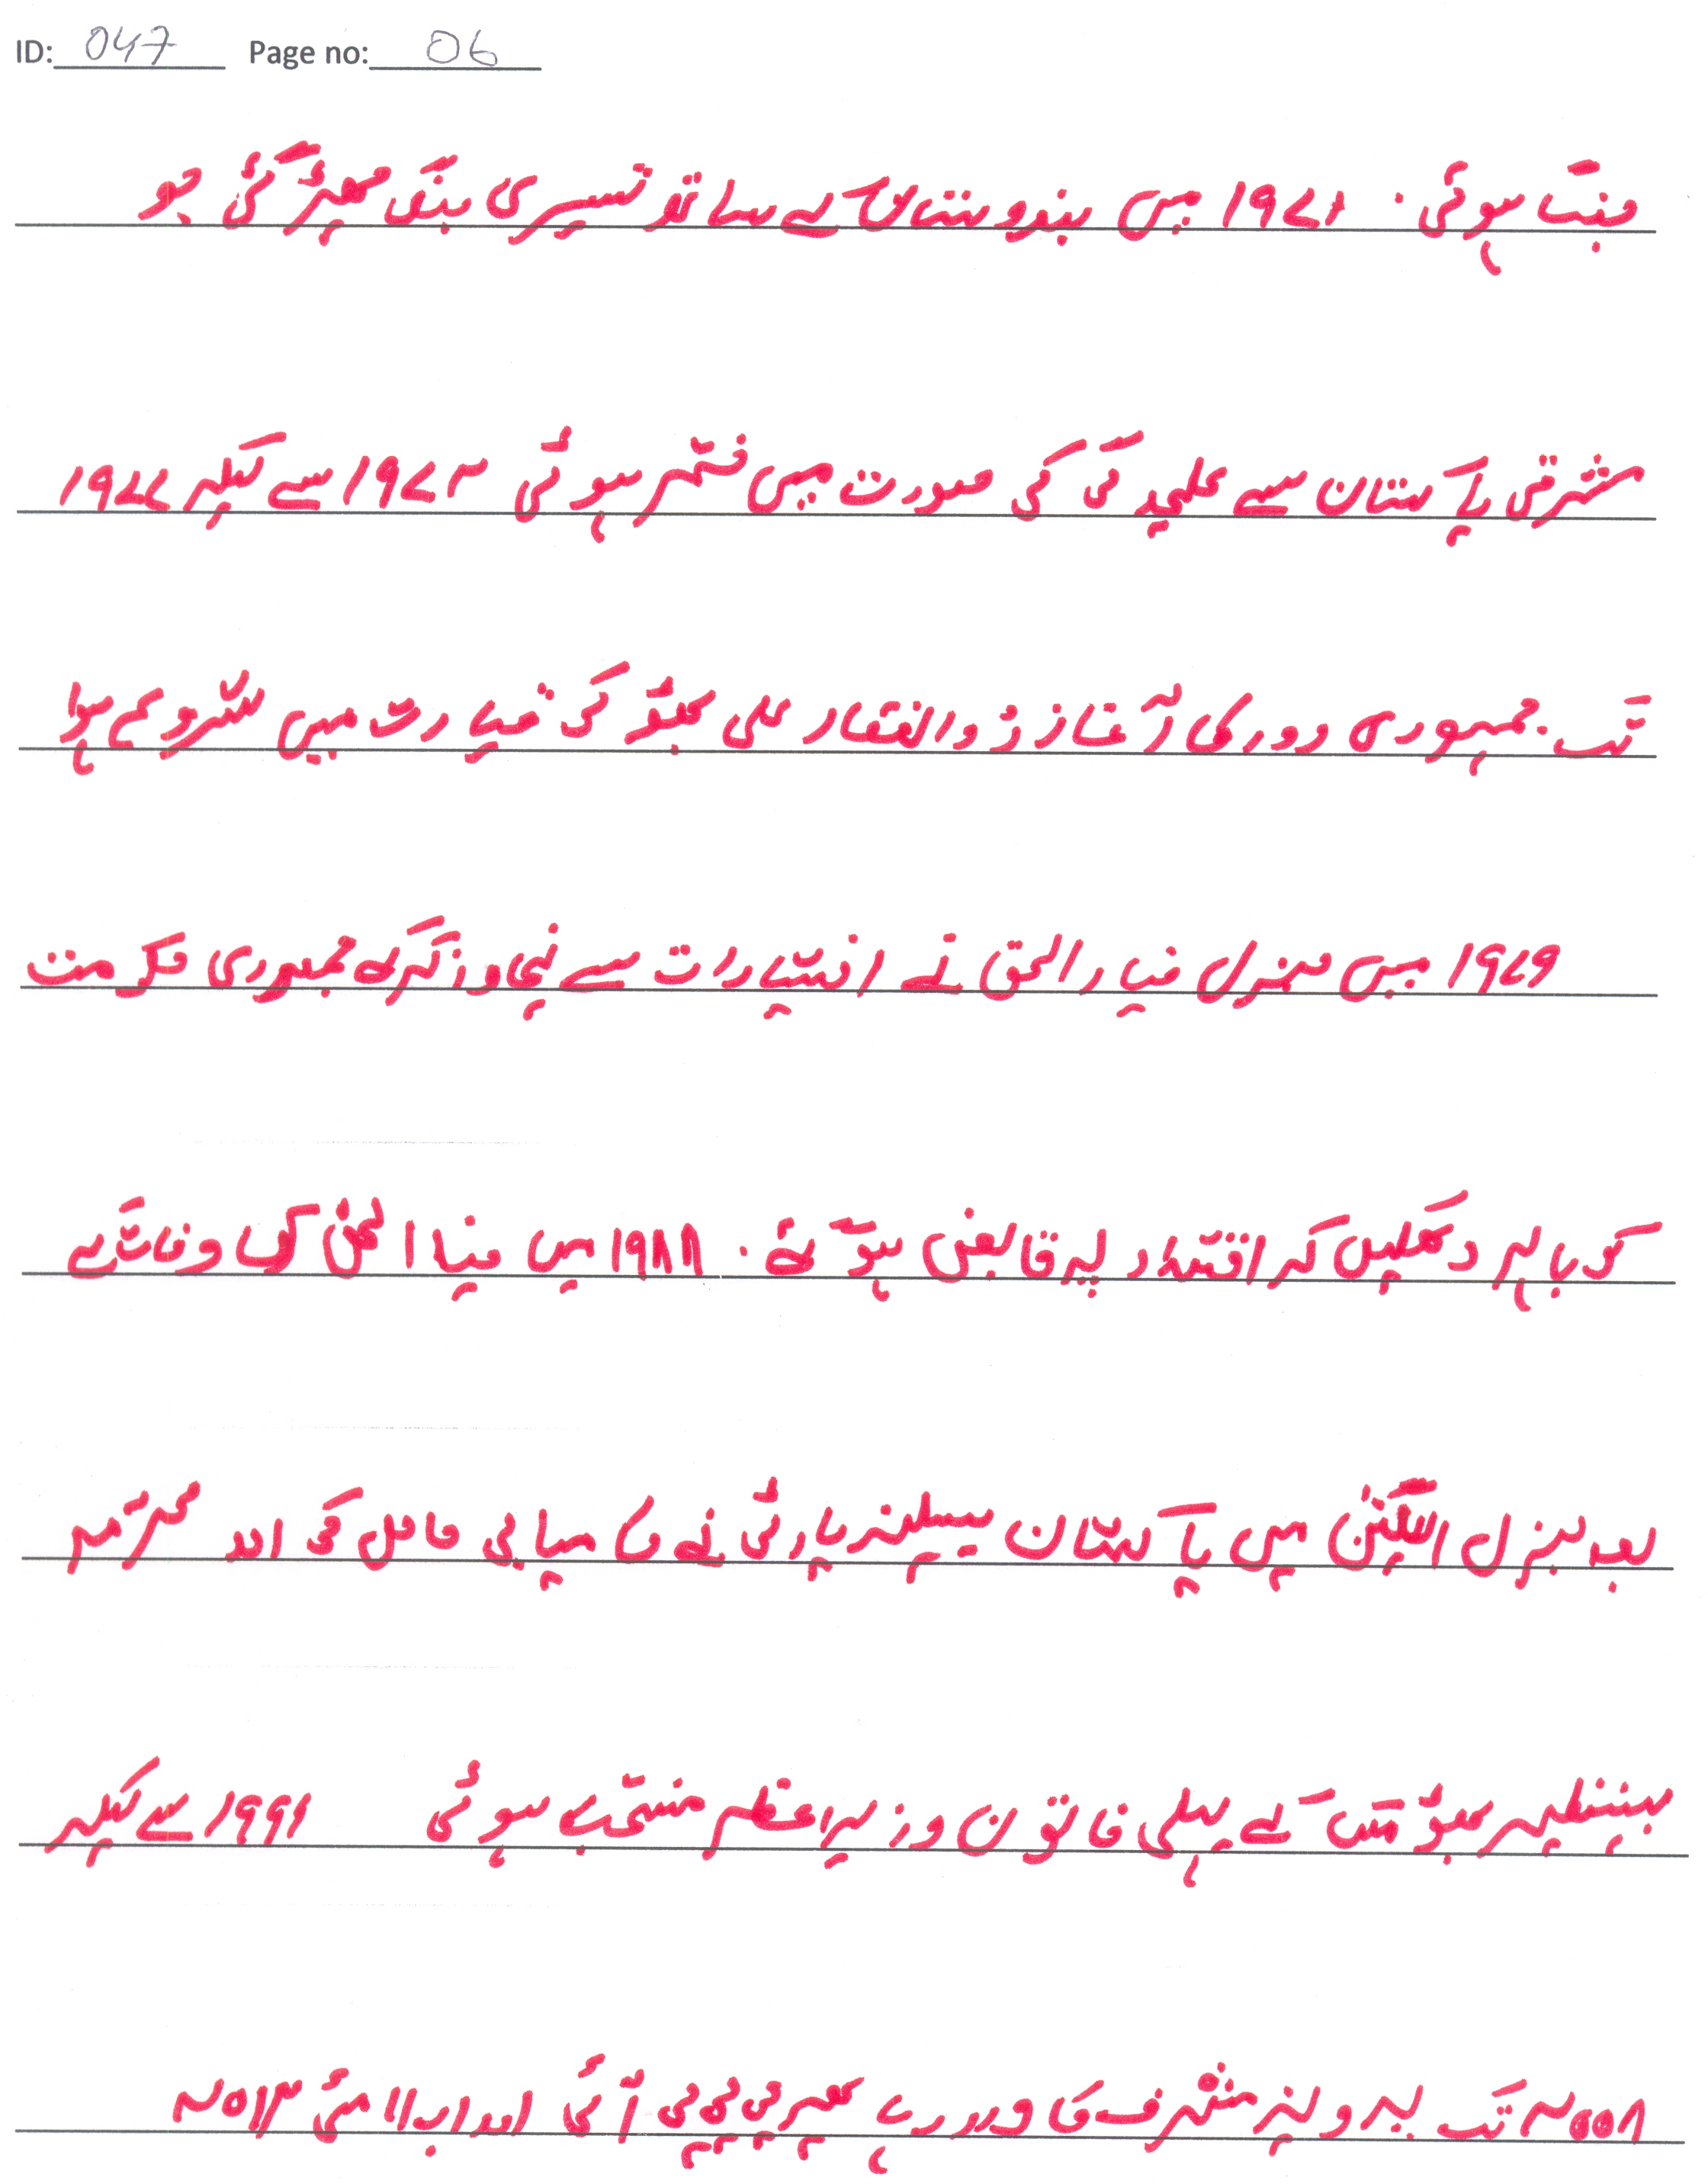 ID: 047 Page no: 06
جنگ ہوئی. ۱۹۷۱ میں ہندوستان کے ساتھ تیسری جنگ چھڑ گئی جو
مشرقی پاکستان سے علیحدگی کی صورت میں ختم ہوئی ۱۹۷۲ سے لیکر ۱۹۷۷
تک. جمہوری دور کی آغاز ذوالفقار علی بھٹو کی قیادت میں شروع ہوا
۱۹۷۹ میں جنرل ضیاء الحق نے اختیارات سے تجاوز کرکے جمہوری حکومت
کو باہر دھکیل کر اقتدار پر قابض ہوگئے. ۱۹۸۸ میں ضیا الحق کی وفات کے
بعد جنرل الیکشن میں پاکستان پیپلز پارٹی نے کامیابی حاصل کی اور محترمہ
بینظیر بھٹو ملک کے پہلی خاتون وزیراعظم منتخب ہوئی ۱۹۹۹ سے لیکر
۲۰۰۸ تک پرویز مشرف کا دور رہا پھر پی پی پی آئی اور اب ۱۱ مئی ۲۰۱۳